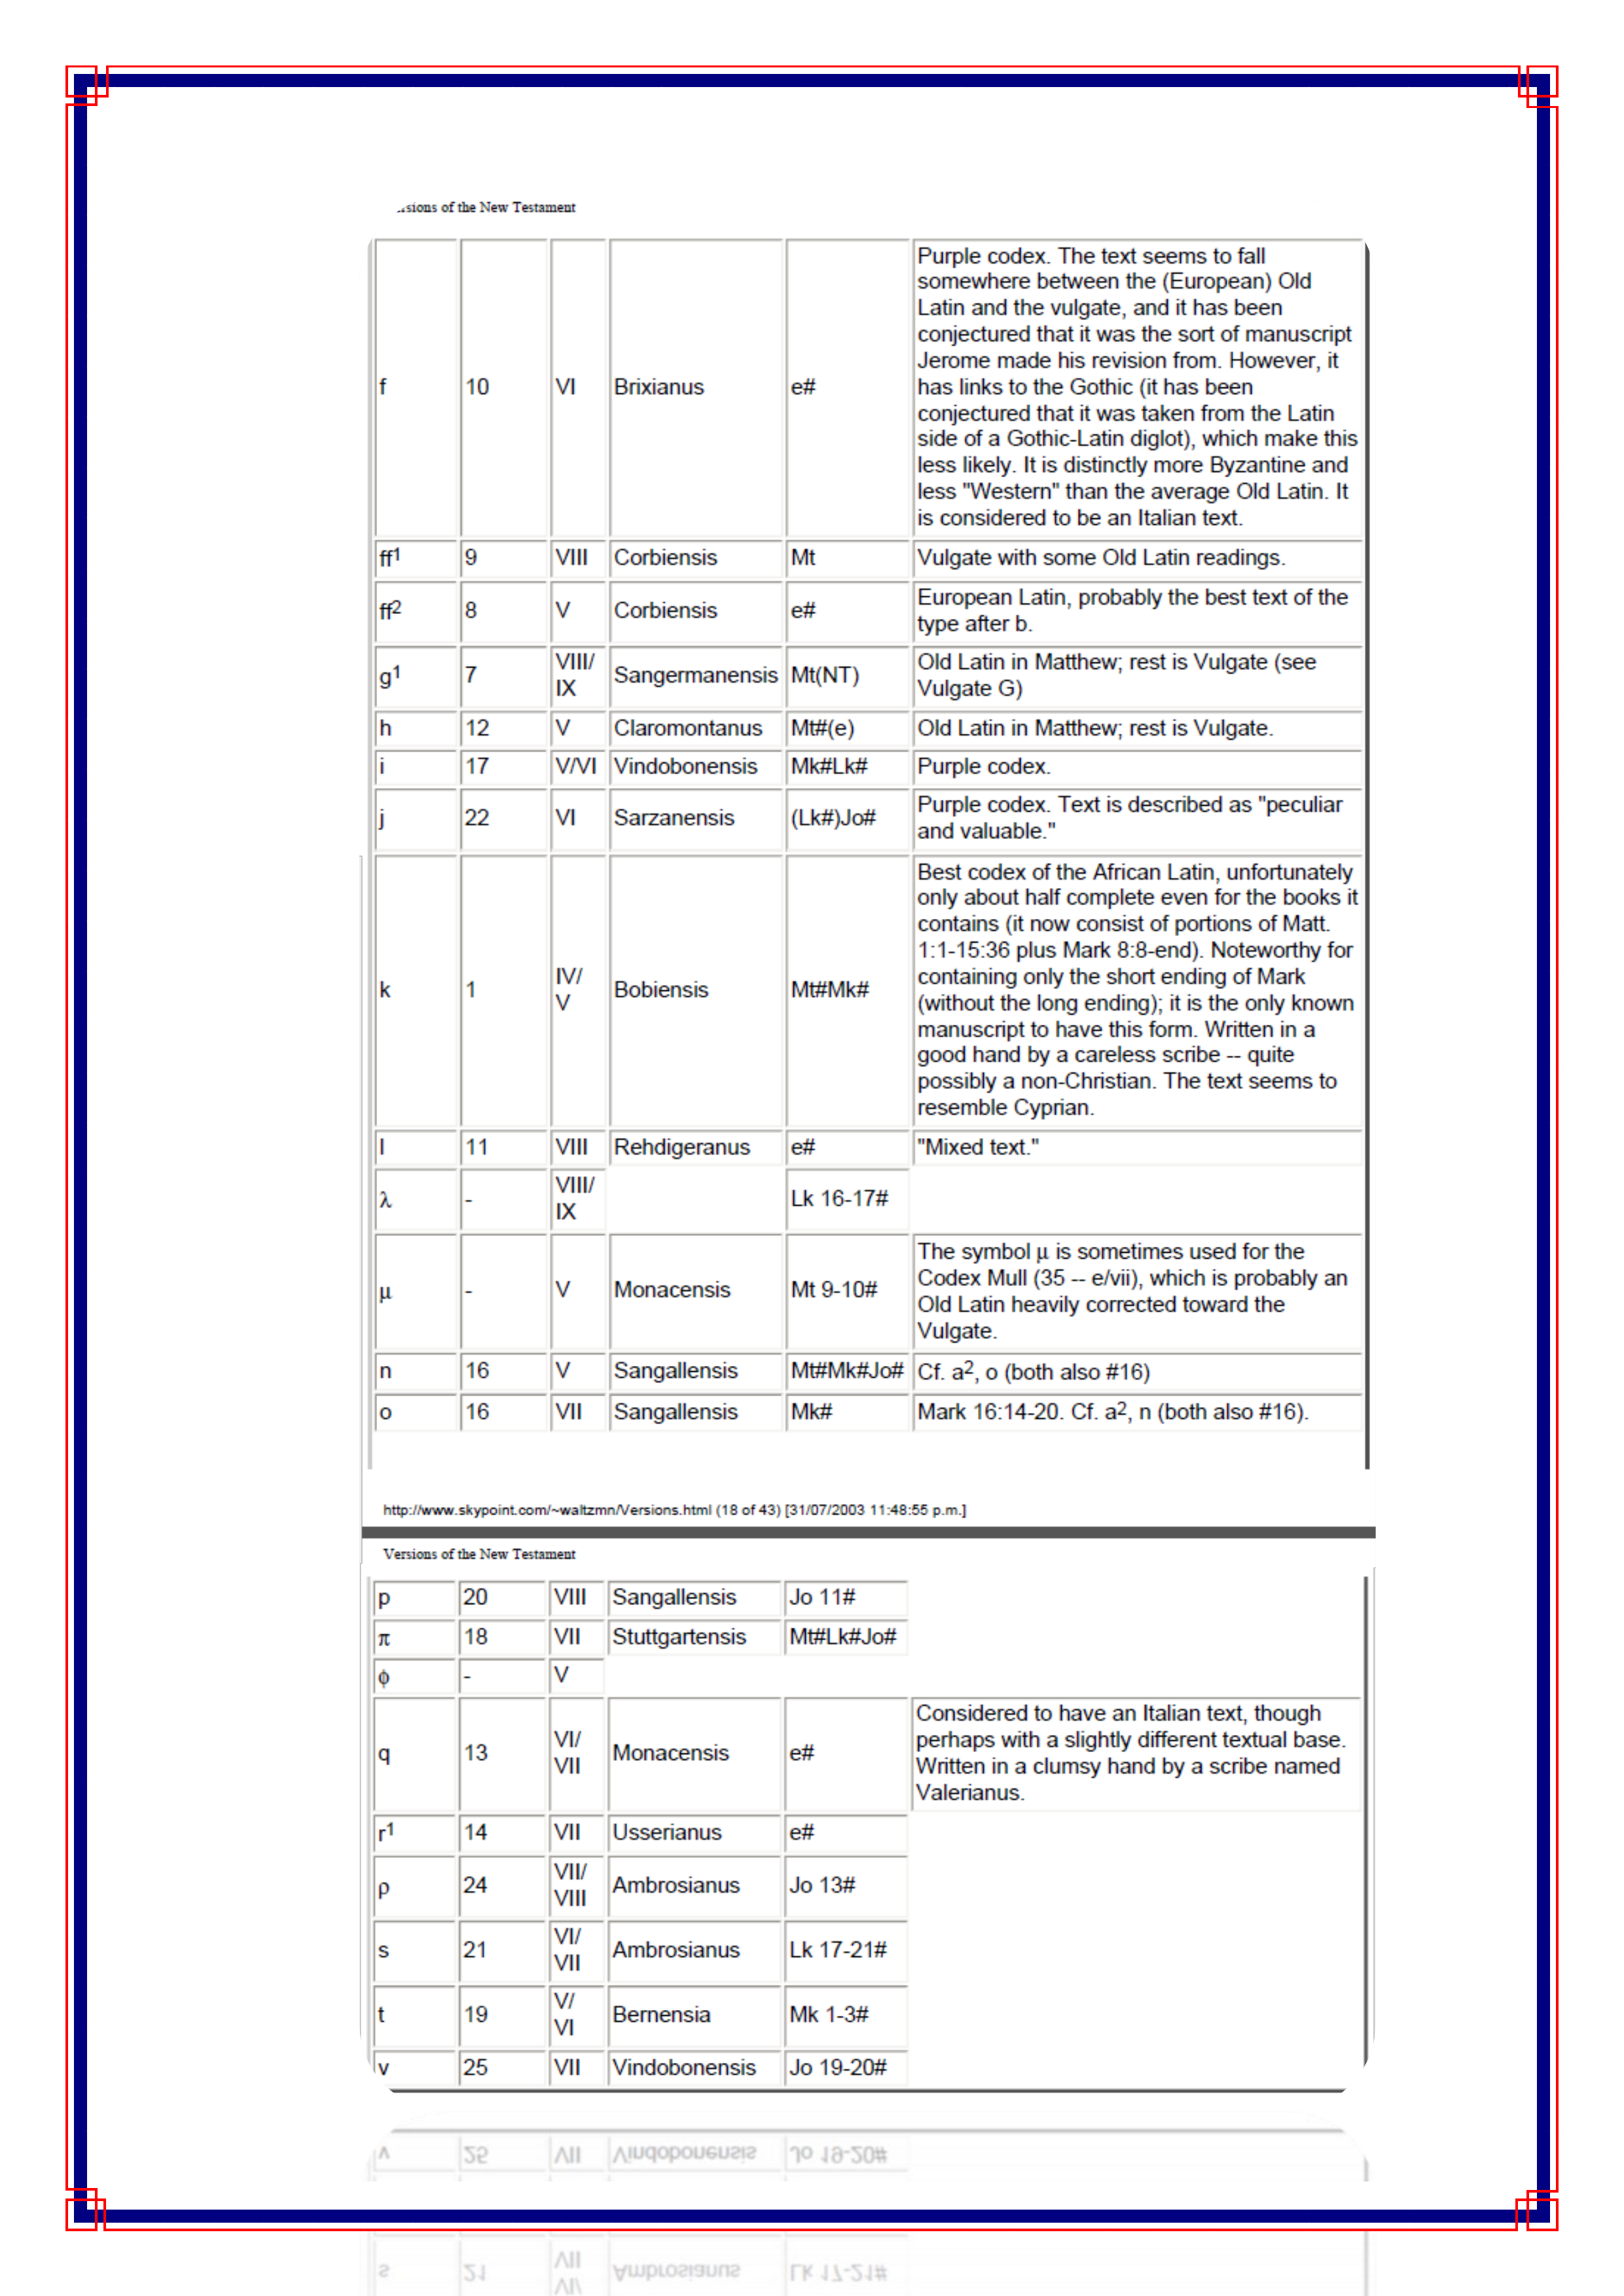 sions of the New Testament
Purple codex. The text seems to fall
somewhere between the (European) Old
Latin and the vulgate, and it has been
conjectured that it was the sort of manuscript
Jerome made his revision from. However, it
f 10 VI Brixianus e# has links to the Gothic (it has been
conjectured that it was taken from the Latin
side of a Gothic-Latin diglot), which make this
less likely. It is distinctly more Byzantine and
less "Western" than the average Old Latin. It
is considered to be an Italian text.
ff1 9 VIII Corbiensis Mt Vulgate with some Old Latin readings.
ff2 8 V Corbiensis e# European Latin, probably the best text of the
type after b.
g1 7 VIII/ Sangermanensis Mt(NT) Old Latin in Matthew; rest is Vulgate (see
IX Vulgate G)
h 12 V Claromontanus Mt#(e) Old Latin in Matthew; rest is Vulgate.
i 17 V/VI Vindobonensis Mk#Lk# Purple codex.
j 22 VI Sarzanensis (Lk#)Jo# Purple codex. Text is described as "peculiar
and valuable."
Best codex of the African Latin, unfortunately
only about half complete even for the books it
contains (it now consist of portions of Matt.
1:1-15:36 plus Mark 8:8-end). Noteworthy for
k 1 IV/ Bobiensis Mt#Mk# containing only the short ending of Mark
V (without the long ending); it is the only known
manuscript to have this form. Written in a
good hand by a careless scribe -- quite
possibly a non-Christian. The text seems to
resemble Cyprian.
l 11 VIII Rehdigeranus e# "Mixed text."
λ - VIII/ Lk 16-17#
IX
The symbol μ is sometimes used for the
μ - V Monacensis Mt 9-10# Codex Mull (35 -- e/vii), which is probably an
Old Latin heavily corrected toward the
Vulgate.
n 16 V Sangallensis Mt#Mk#Jo# Cf. a2, o (both also #16)
o 16 VII Sangallensis Mk# Mark 16:14-20. Cf. a2, n (both also #16).
http://www.skypoint.com/~waltzmn/Versions.html (18 of 43) [31/07/2003 11:48:55 p.m.]
Versions of the New Testament
p 20 VIII Sangallensis Jo 11#
π 18 VII Stuttgartensis Mt#Lk#Jo#
ϕ - V
Considered to have an Italian text, though
q 13 VI/ Monacensis e# perhaps with a slightly different textual base.
VII Written in a clumsy hand by a scribe named
Valerianus.
r1 14 VII Usserianus e#
ρ 24 VII/ Ambrosianus Jo 13#
VIII
s 21 VI/ Ambrosianus Lk 17-21#
VII
t 19 V/ Bernensia Mk 1-3#
VI
v 25 VII Vindobonensis Jo 19-20#